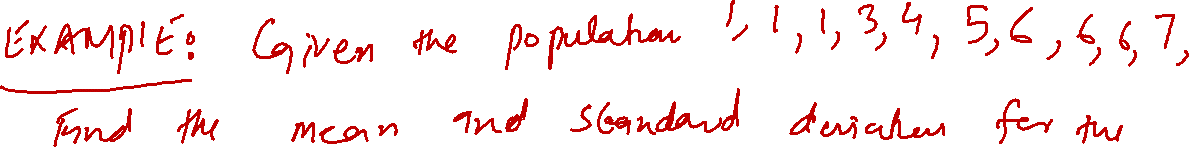 EXAMPLE: Given the population 1, 1, 1, 3, 4, 5, 6, 6, 6, 7,
Find the mean and standard deviation for the